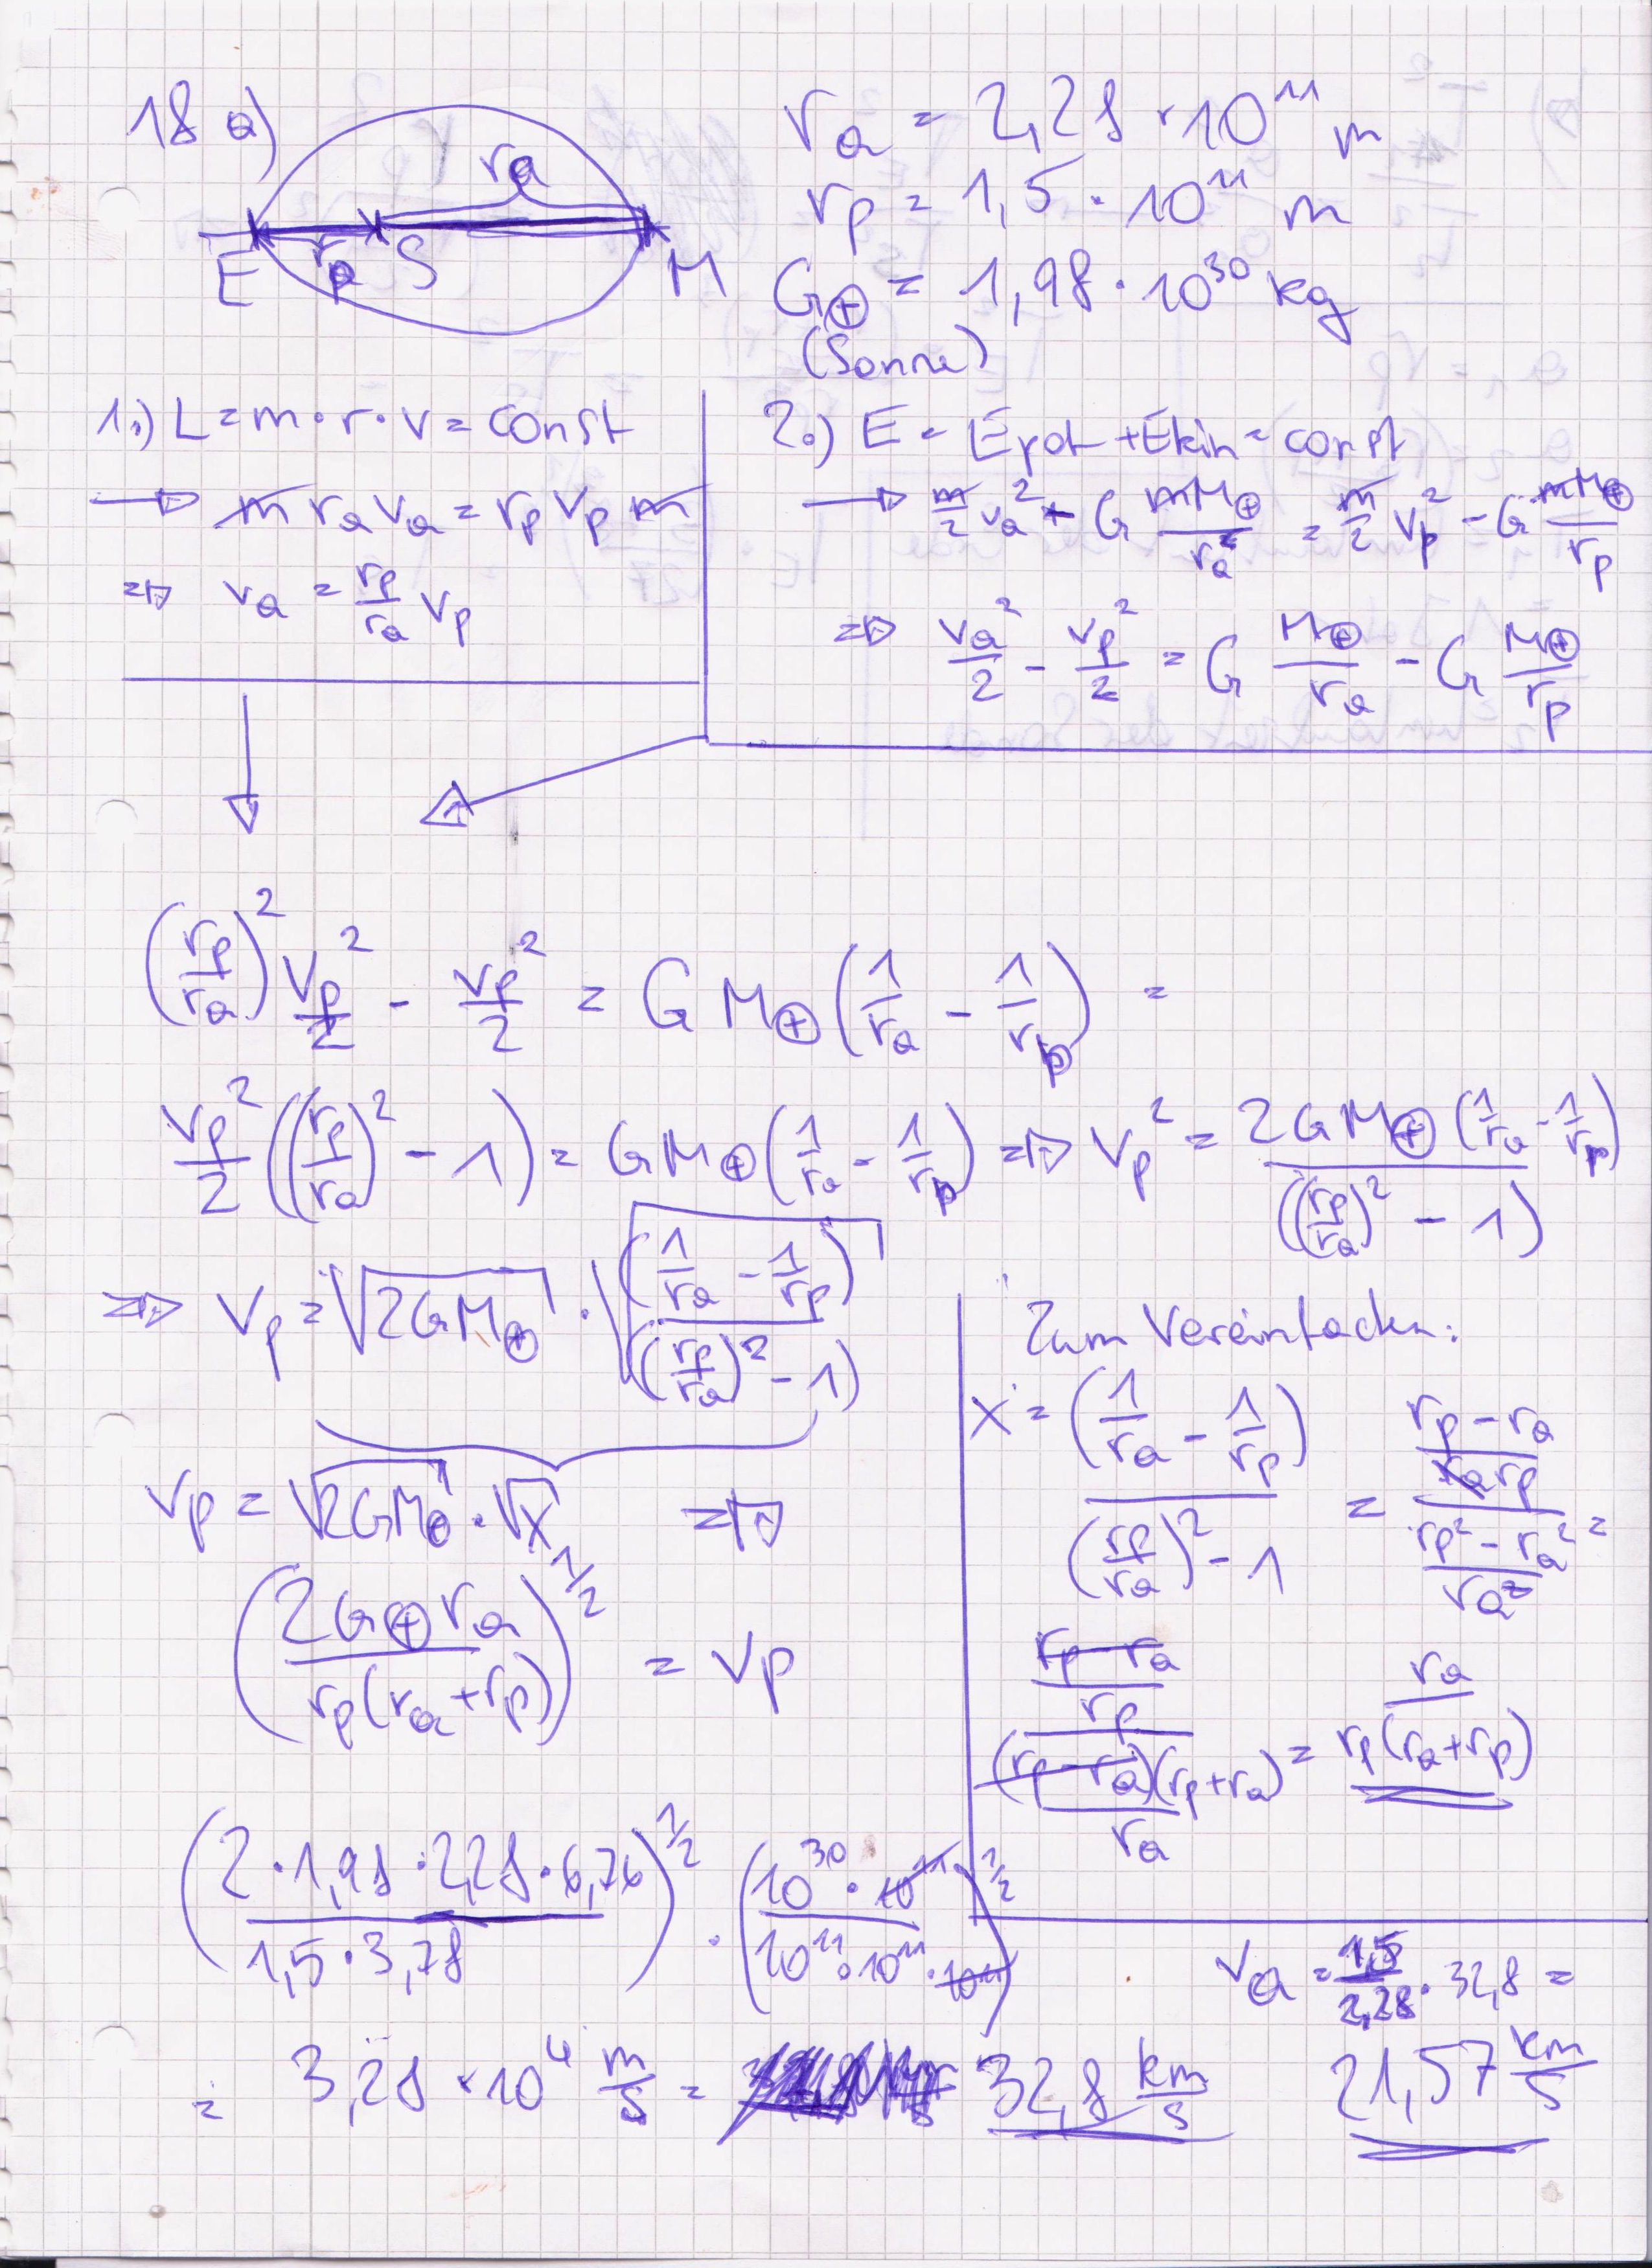 18 a)
ra
E rp S M
ra = 2,28 · 10^11 m
rp = 1,5 · 10^11 m
G⊕ = 1,98 · 10^30 kg
(Sonne)
1.) L = m · r · v = const
→ m ra va = rp vp m
⇒ va = rp/ra vp
2.) E = Epot + Ekin = const
→ m/2 va² - G mM⊕/ra = m/2 vp² - G mM⊕/rp
⇒ va²/2 - vp²/2 = G M⊕/ra - G M⊕/rp
(rp/ra)² vp²/2 - vp²/2 = G M⊕ (1/ra - 1/rp) =
vp²/2 ((rp/ra)² - 1) = G M⊕ (1/ra - 1/rp) ⇒ vp² = 2GM⊕ (1/ra - 1/rp) / ((rp/ra)² - 1)
⇒ vp = √(2GM⊕) · √((1/ra - 1/rp) / ((rp/ra)² - 1))
vp = √(2GM⊕) · √X ⇒
(2G⊕ra / rp(ra+rp))^1/2 = vp
Zum Vereinfachen:
X = (1/ra - 1/rp) / ((rp/ra)² - 1) = ((rp - ra)/(ra rp)) / ((rp² - ra²)/ra²) =
((rp - ra)/rp) / ((rp - ra)(rp + ra)/ra) = ra / rp(ra+rp)
(2 · 1,98 · 2,28 · 6,76 / 1,5 · 3,78)^1/2 · (10^30 · 10^11 / 10^11 · 10^11 · 10^11)^1/2
= 3,28 · 10^4 m/s = 32,8 km/s
va = 1,5/2,28 · 32,8 =
21,57 km/s